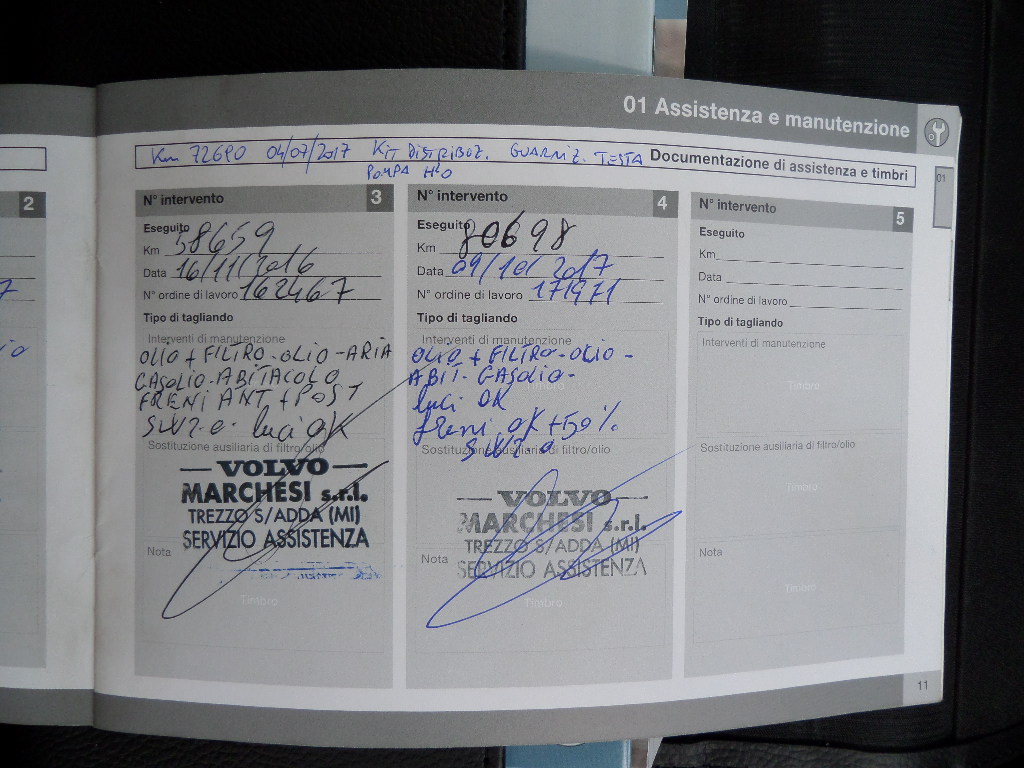 01 Assistenza e manutenzione
Km 72690 04/07/2017 KIT DISTRIBUZ. GUARNIZ. TESTA
POMPA H2O
Documentazione di assistenza e timbri
01
2
N° intervento 3
Eseguito
Km 58659
Data 16/11/2016
N° ordine di lavoro 162467
Tipo di tagliando
Interventi di manutenzione
OLIO + FILTRO-OLIO-ARIA
GASOLIO-ABITACOLO
FRENI ANT + POST
luci OK
Sostituzione ausiliaria di filtro/olio
VOLVO
MARCHESI s.r.l.
TREZZO S/ADDA (MI)
SERVIZIO ASSISTENZA
Nota
Timbro
N° intervento 4
Eseguito
Km 80698
Data 09/10/2017
N° ordine di lavoro 171971
Tipo di tagliando
Interventi di manutenzione
OLIO + FILTRO-OLIO-
ABIT-GASOLIO-
Timbro
luci OK
freni OK +50%
Sostituzione ausiliaria di filtro/olio
VOLVO
MARCHESI s.r.l.
TREZZO S/ADDA (MI)
SERVIZIO ASSISTENZA
Nota
Timbro
N° intervento 5
Eseguito
Km
Data
N° ordine di lavoro
Tipo di tagliando
Interventi di manutenzione
Timbro
Sostituzione ausiliaria di filtro/olio
Timbro
Nota
Timbro
11